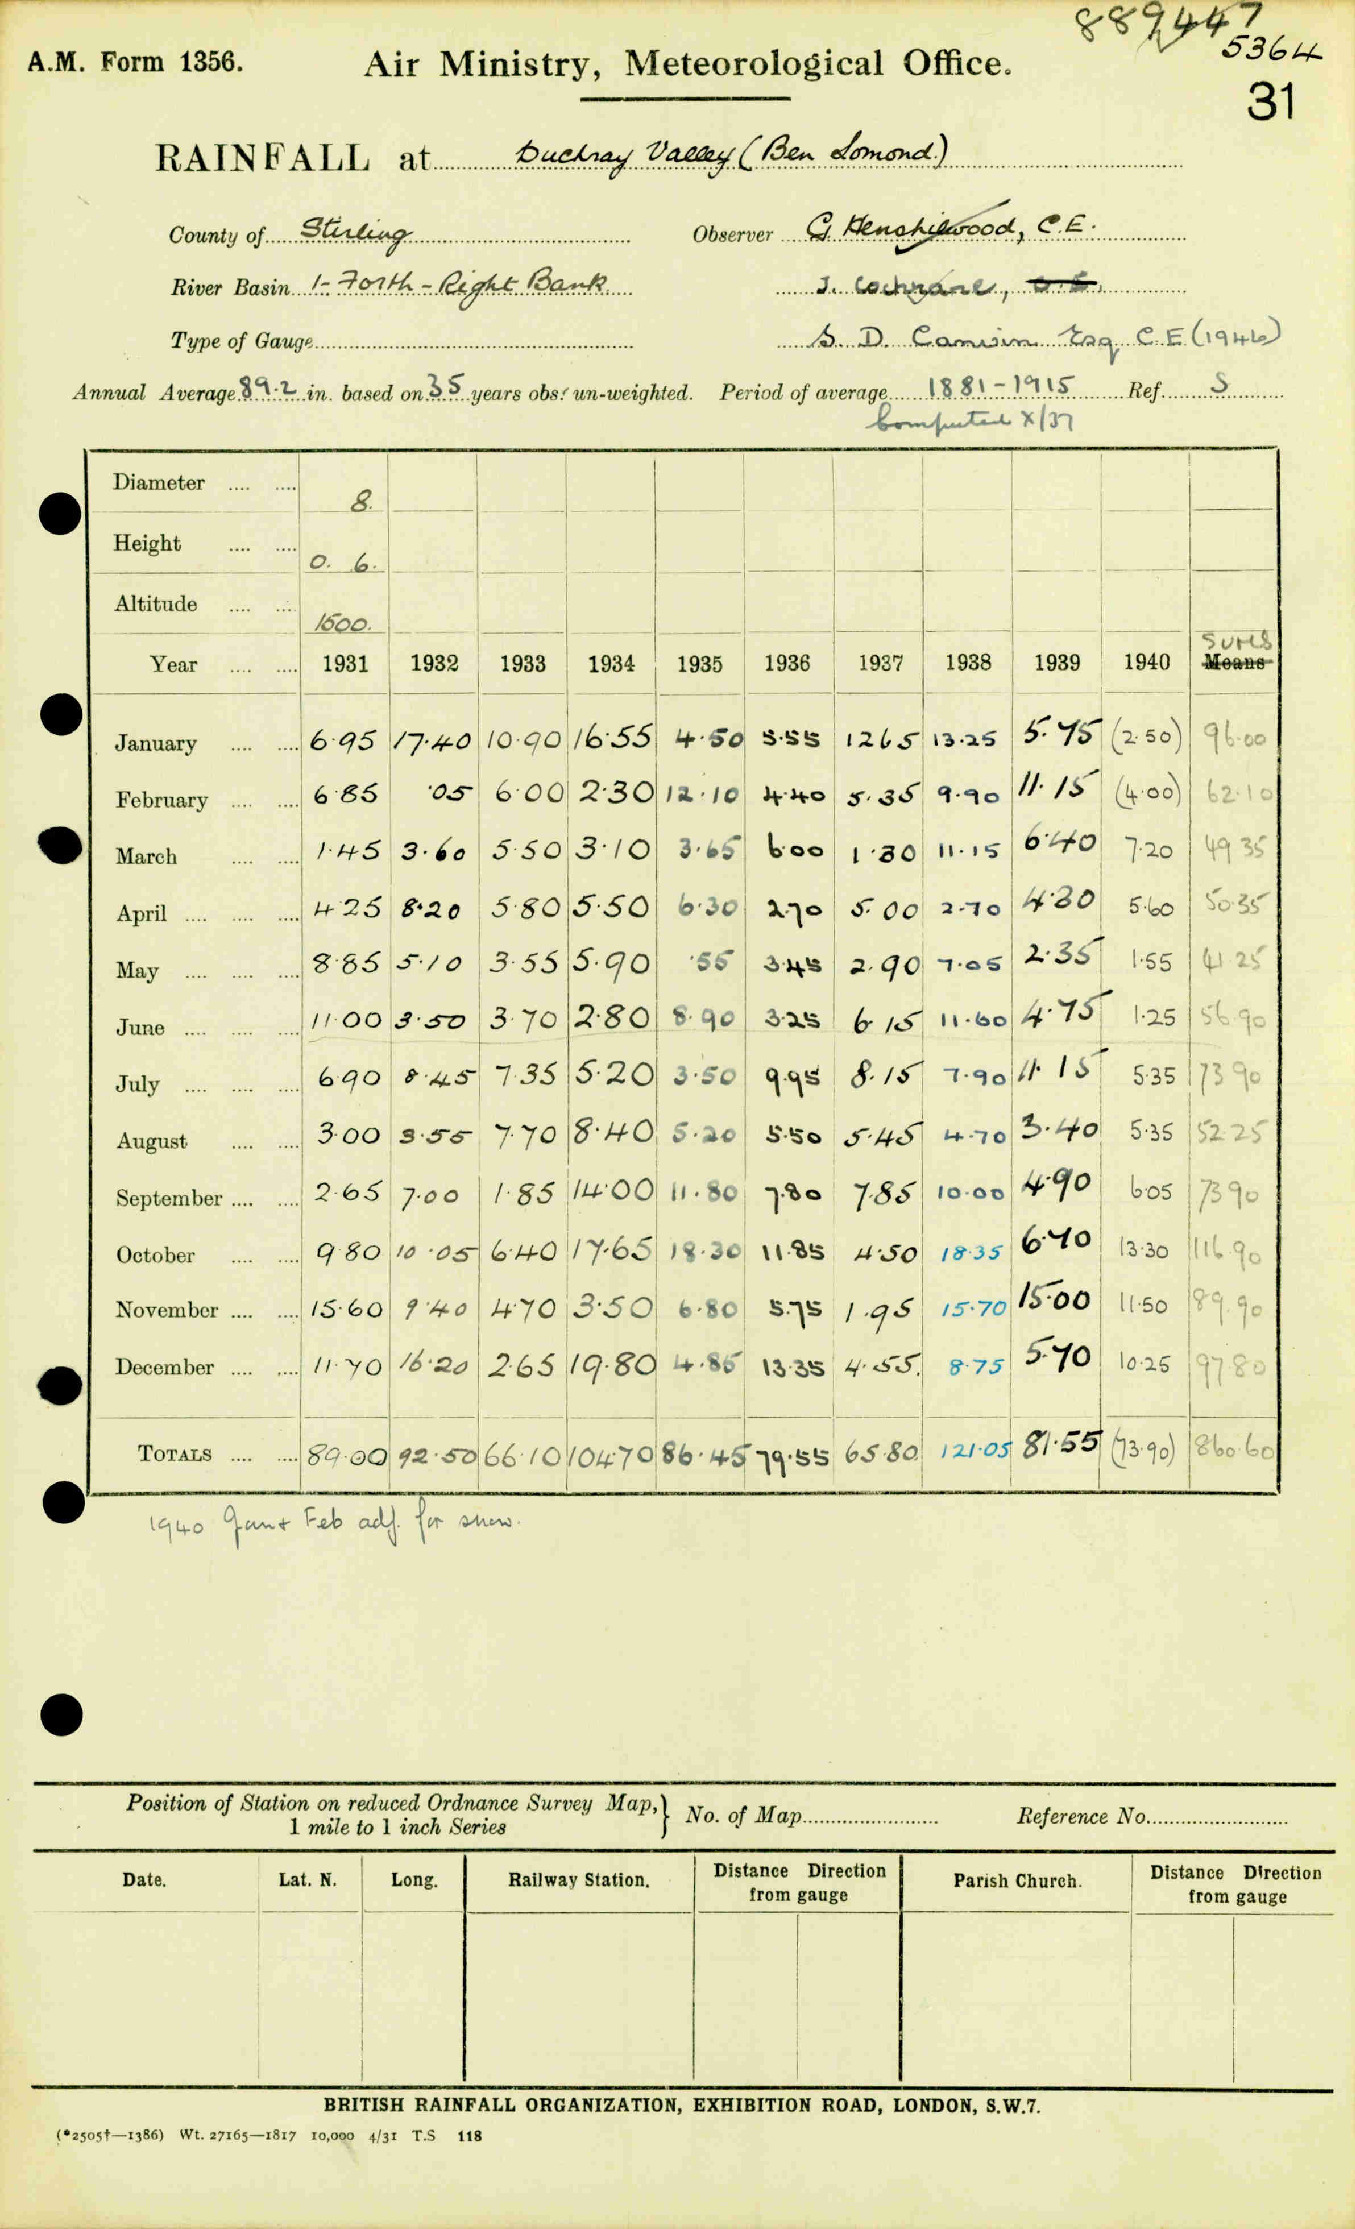 889447
5364
A.M. Form 1356. Air Ministry, Meteorological Office.
31
RAINFALL at Duchray Valley (Ben Lomond)
County of Stirling Observer G. Henshilwood, C.E.
River Basin 1-Forth-Right Bank J. Cochrane, C.E.
Type of Gauge S. D. Esq C.E (1946)
Annual Average 89.2 in. based on 35 years obs: un-weighted. Period of average 1881-1915 Ref. S
Computed X/37
Diameter 8.
Height 0. 6.
Altitude 1500.
Sums
Year 1931 1932 1933 1934 1935 1936 1937 1938 1939 1940 Means
January 6.95 17.40 10.90 16.55 4.50 5.55 12.65 13.25 5.75 (2.50) 96.00
February 6.85 .05 6.00 2.30 12.10 4.40 5.35 9.90 11.15 (4.00) 62.10
March 1.45 3.60 5.50 3.10 3.65 6.00 1.30 11.15 6.40 7.20 49.35
April 4.25 8.20 5.80 5.50 6.30 2.70 5.00 2.70 4.30 5.60 50.35
May 8.85 5.10 3.55 5.90 .55 3.45 2.90 7.05 2.35 1.55 41.25
June 11.00 3.50 3.70 2.80 8.90 3.25 6.15 11.60 4.75 1.25 56.90
July 6.90 8.45 7.35 5.20 3.50 9.95 8.15 7.90 11.15 5.35 73.90
August 3.00 3.55 7.70 8.40 5.20 5.50 5.45 4.70 3.40 5.35 52.25
September 2.65 7.00 1.85 14.00 11.80 7.80 7.85 10.00 4.90 6.05 73.90
October 9.80 10.05 6.40 17.65 18.30 11.85 4.50 18.35 6.70 13.30 116.90
November 15.60 9.40 4.70 3.50 6.80 5.75 1.95 15.70 15.00 11.50 89.90
December 11.70 16.20 2.65 19.80 4.85 13.35 4.55 8.75 5.70 10.25 97.80
TOTALS 89.00 92.50 66.10 104.70 86.45 79.55 65.80 121.05 81.55 (73.90) 860.60
1940 Jan & Feb adj. for snow.
Position of Station on reduced Ordnance Survey Map,
1 mile to 1 inch Series } No. of Map Reference No.
Date. Lat. N. Long. Railway Station. Distance from gauge Direction Parish Church. Distance from gauge Direction
BRITISH RAINFALL ORGANIZATION, EXHIBITION ROAD, LONDON, S.W.7.
(*2505†—1386) Wt. 27165—1817 10,000 4/31 T.S 118